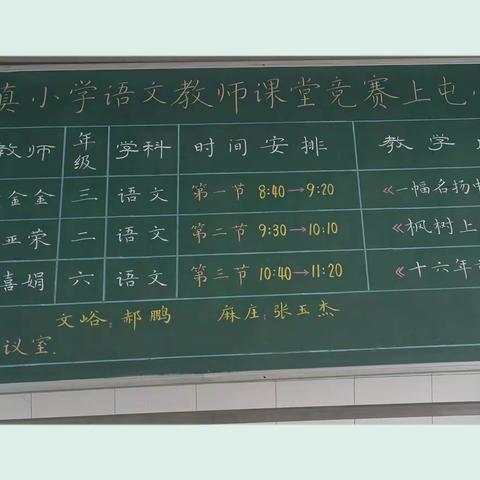 镇小学语文教师课堂竞赛上屯小
教师 年级 学科 时间安排 教学
金金 三 语文 第一节 8:40→9:20 《一幅名扬中
亚荣 二 语文 第二节 9:30→10:10 《枫树上
喜娟 六 语文 第三节 10:40→11:20 《十六年前
文峪:郝鹏 麻庄:张玉杰
议室.